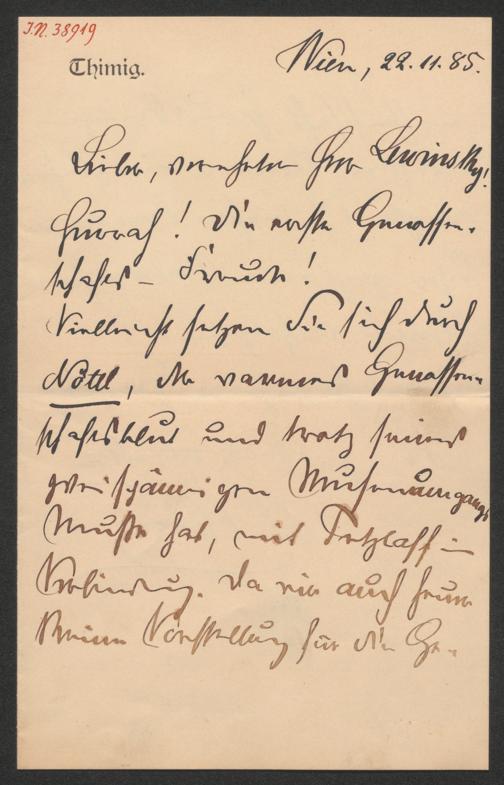 J.N. 38919
Thimig.
Wien, 22.11.85.
Lieber, verehrter Herr Lewinsky!
Hurrah! Die erste Genossen-
schafts-Freude!
Vielleicht setzen Sie sich durch
Nöttl, der warmes Genossen-
schaftsblut und trotz seines
zweispännigen Musenumgangs
Muße hat, mit Tetzlaff in
Verbindung. Da wir auch heuer
keine Vorstellung für die Ge-